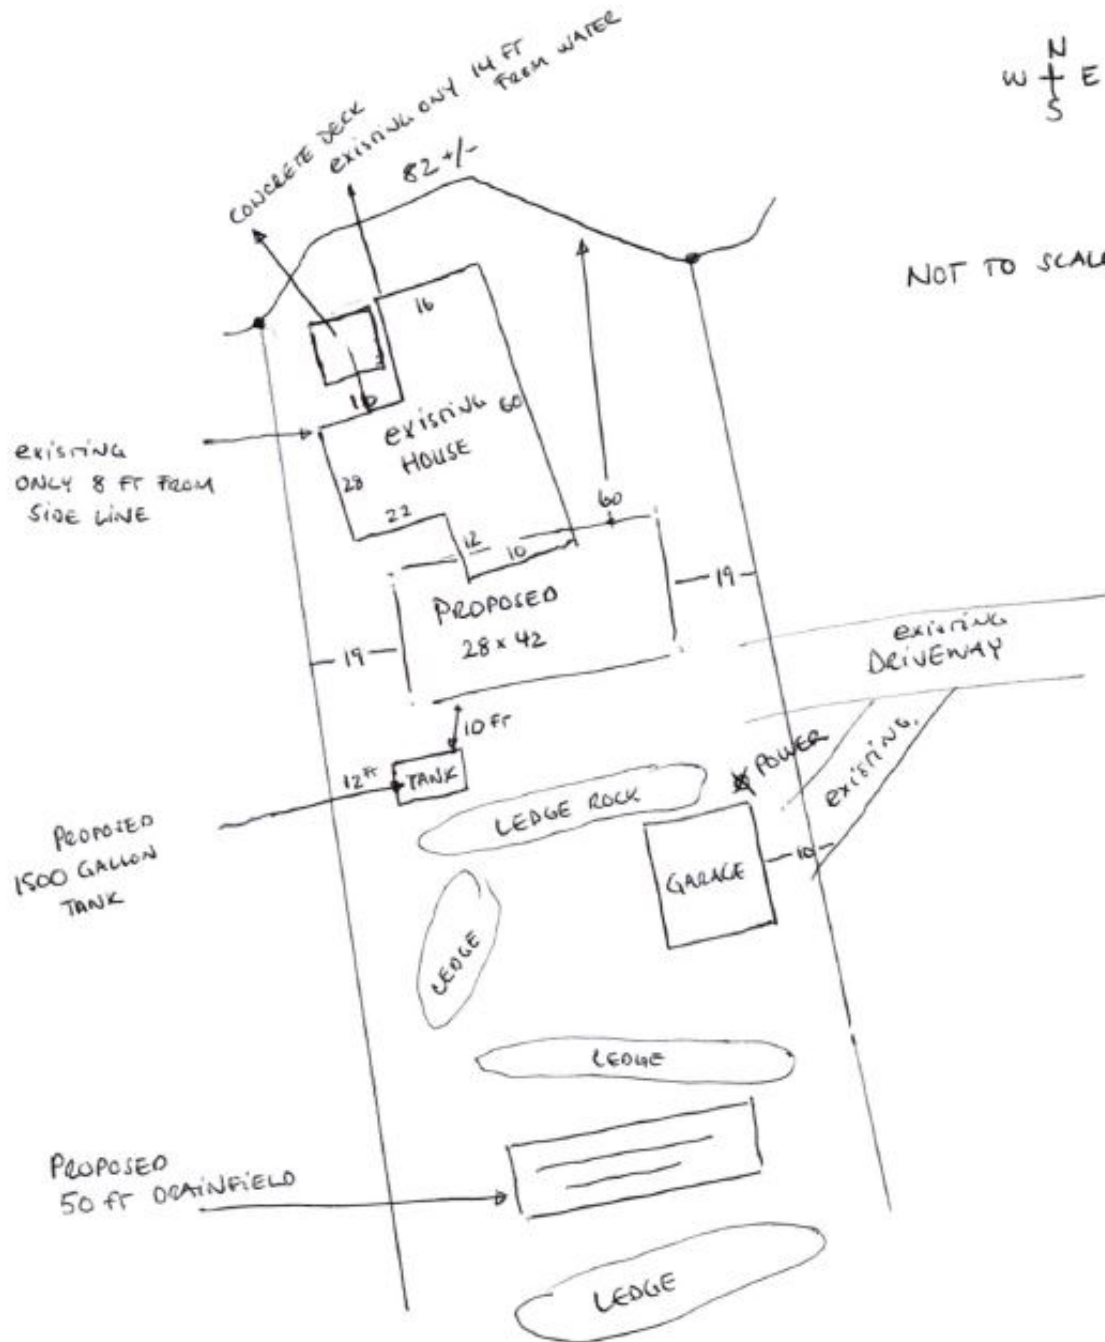 CONCRETE DECK
existing ONLY 14 FT
FROM WATER
82 +/-
N
W E
S
NOT TO SCALE
16
16
60
existing
HOUSE
existing
ONLY 8 FT FROM
SIDE LINE
28
22
12
10
60
PROPOSED
28 x 42
19
19
existing
DRIVEWAY
existing
10 FT
POWER
12 FT
TANK
LEDGE ROCK
PROPOSED
1500 GALLON
TANK
GARAGE
10
LEDGE
LEDGE
PROPOSED
50 FT DRAINFIELD
LEDGE